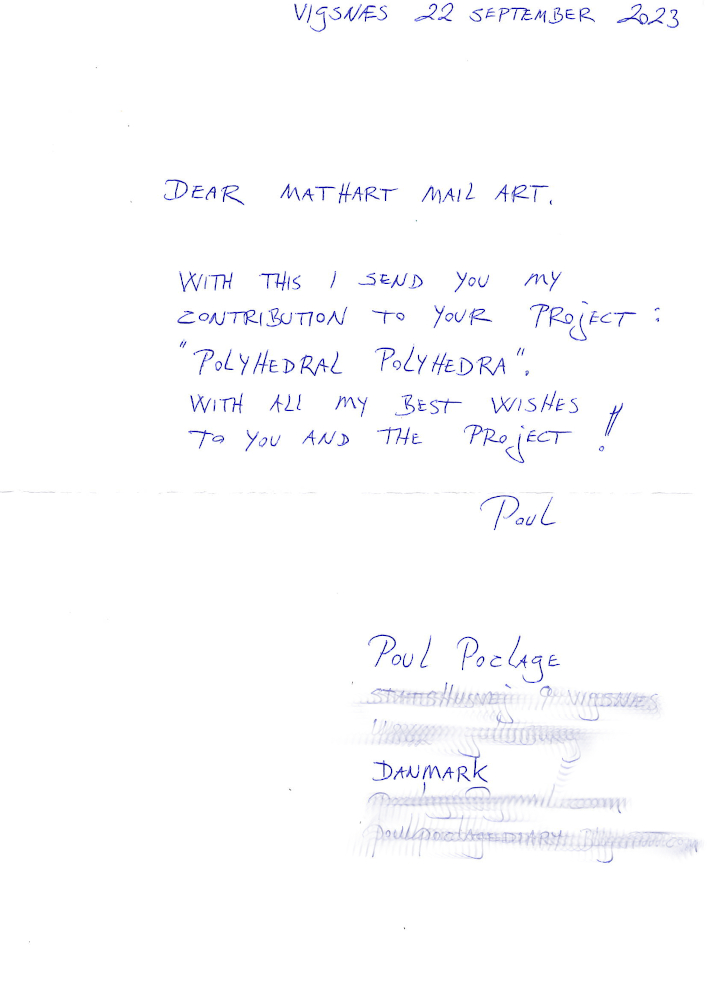 VIGSNÆS 22 SEPTEMBER 2023
DEAR MATHART MAIL ART.
WITH THIS I SEND YOU MY
CONTRIBUTION TO YOUR PROJECT:
"POLYHEDRAL POLYHEDRA".
WITH ALL MY BEST WISHES
TO YOU AND THE PROJECT!!
Poul
Poul Poclage
DANMARK